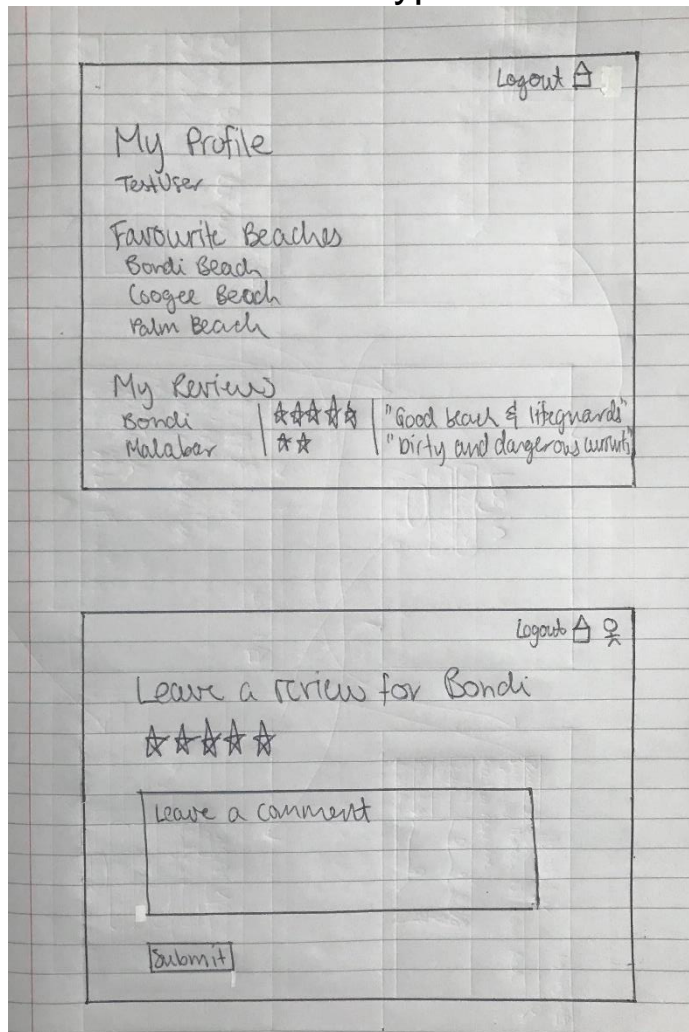 Logout
My Profile
TestUser
Favourite Beaches
Bondi Beach
Coogee Beach
Palm Beach
My Reviews
Bondi | ☆☆☆☆☆ | "Good beach & lifeguards"
Malabar | ☆☆ | "Dirty and dangerous currents"
Logout
Leave a review for Bondi
☆☆☆☆☆
Leave a comment
Submit